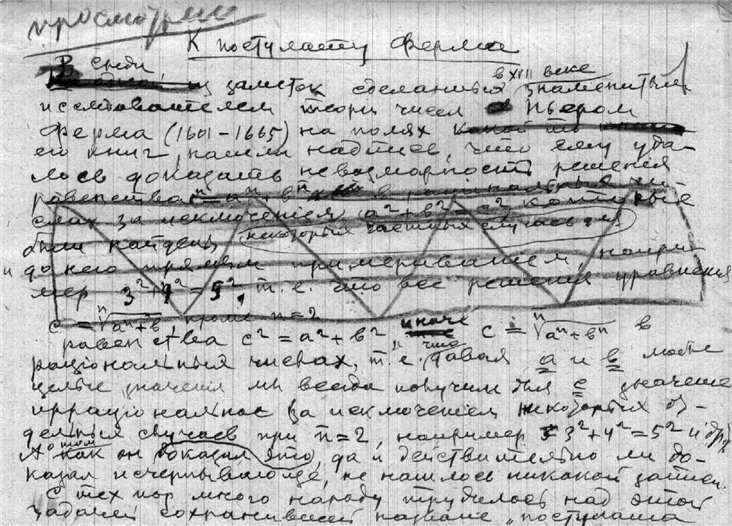 просмотрено
К постулату Ферма
В среди
из заметок сделанных в XVII веке знаменитым
исследователем теории чисел Пьером
Ферма (1601-1665) на полях
его книг, нашли надпись, что ему уда-
лось доказать невозможность решения
равенства cⁿ = aⁿ + bⁿ в рациональных чи-
слах за исключением a² + b² = c² которые
были найдены некоторых частных случаев
и до него прямым примериванием, напри-
мер 3² + 4² = 5², т.е. что все решения уравнения
c = ⁿ√aⁿ+bⁿ, кроме n=2
равенства c² = a² + b², иначе c = ⁿ√aⁿ+bⁿ в
рациональных числах, т.е. что давая a и b
целые значения мы всегда получим для c значение
иррациональное за исключением некоторых от-
дельных случаев при n=2, например 3²+4²=5² и др.
А о том как он доказал это, да и действительно ли до-
казал исчерпывающе, не нашлось никакой записи.
С тех пор много народу трудилось над этой
задачей сохранившей название „постулата